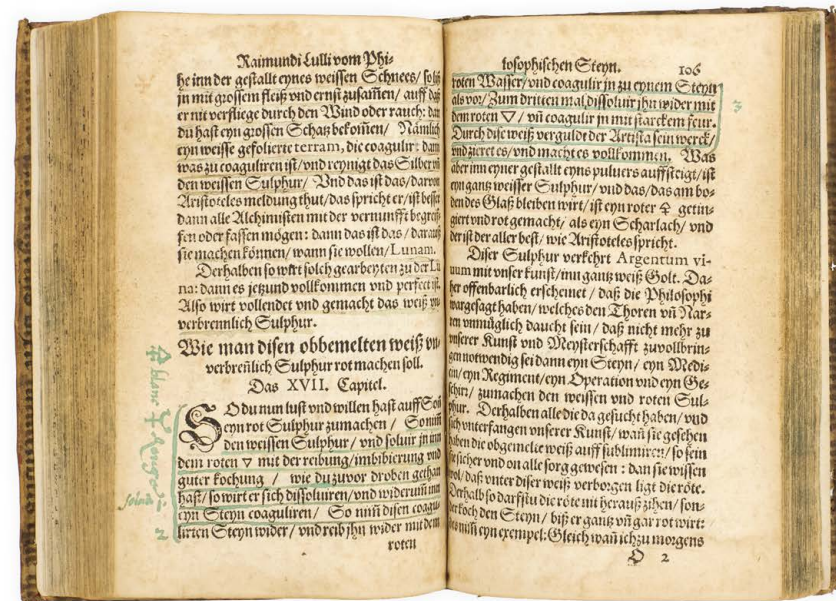 Raimundi Lulli vom Phi-
he inn der gestallt eynes weissen Schnees/ so
jn mit grossem fleiß vnd ernst zusam̃en/ auff daß
er nit verfliege durch den Wind oder rauch: dañ
du hast eyn grossen Schatz bekom̃en/ Nämlich
eyn weisse gefolierte terram, die coagulirt dann
was zu coaguliren ist/ vnd reynigt das Silber
den weissen Sulphur/ Vnd das ist das/ daruon
Aristoteles meldung thut/ das spricht er/ ist besser
dann alle Alchimisten mit der vernunfft begreif-
fen oder fassen mögen: dann das ist das/ darauß
sie machen können/ wann sie wollen/ Lunam.
Derhalben so wirt solch gearbeyten zu der Lu
na: dann es jetzund vollkommen vnd perfect ist.
Also wirt vollendet vnd gemacht das weiß vn-
verbrennlich Sulphur.
Wie man disen obbemelten weiß vn-
verbreñlich Sulphur rot machen soll.
Das XVII. Capitel.
SO du nun lust vnd willen hast auff Sol
eyn rot Sulphur zumachen/ So nim̃
den weissen Sulphur/ vnd soluir jn inn
dem roten ▽ mit der reibung/ imbibierung vnd
guter kochung/ wie du zuvor droben gethan
hast/ so wirt er sich dissoluiren/ vnd widerum̃ inn
eyn Steyn coaguliren/ So nim̃ disen coagu-
lirten Steyn wider/ vnd reib jhn wider mit dem
roten
2
losophischen Steyn. 106
roten Wasser/ vnd coagulir jn zu eynem Steyn
als vor/ Zum dritten mal dissoluir jhn wider mit
dem roten ▽/ vñ coagulir jn mit starckem feur.
Durch dise weiß verguldt der Artista sein werck/
vnd zieret es/ vnd macht es vollkommen. Was
aber inn eyner gestallt eyns puluers auffsteigt/ ist
eyn gantz weisser Sulphur/ vnd das/ das am bo-
den des Glaß bleiben wirt/ ist eyn roter 🜍 getin-
giert vnd rot gemacht/ als eyn Scharlach/ vnd
der ist der aller best/ wie Aristoteles spricht.
Diser Sulphur verkehrt Argentum vi-
uum mit vnser kunst/ inn gantz weiß Golt. Da-
her offenbarlich erscheinet/ daß die Philosophi
wargesagt haben/ welches den Thoren vñ Nar-
ren vnmüglich daucht sein/ daß nicht mehr zu
vnserer Kunst vnd Meysterschafft zuvollbrin-
gen notwendig sei dann eyn Steyn/ eyn Medi-
cin/ eyn Regiment/ eyn Operation vnd eyn Ge-
schirr/ zumachen den weissen vnd roten Sul-
phur. Derhalben alle die da gesucht haben/ vnd
sich vnterfangen vnserer Kunst/ wañ sie gesehen
haben die obgemelte weiß auff sublimiren/ so sein
sie sicher vnd on alle sorg gewesen: dan sie wissen
wol/ daß vnter diser weiß verborgen ligt die röte.
Derhalb so darffstu die röte nit herauß zihen/ son-
der koch den Steyn/ biß er gantz vñ gar rot wirt:
des nim̃ eyn exempel: Gleich wañ ich zu morgens
O 2
3